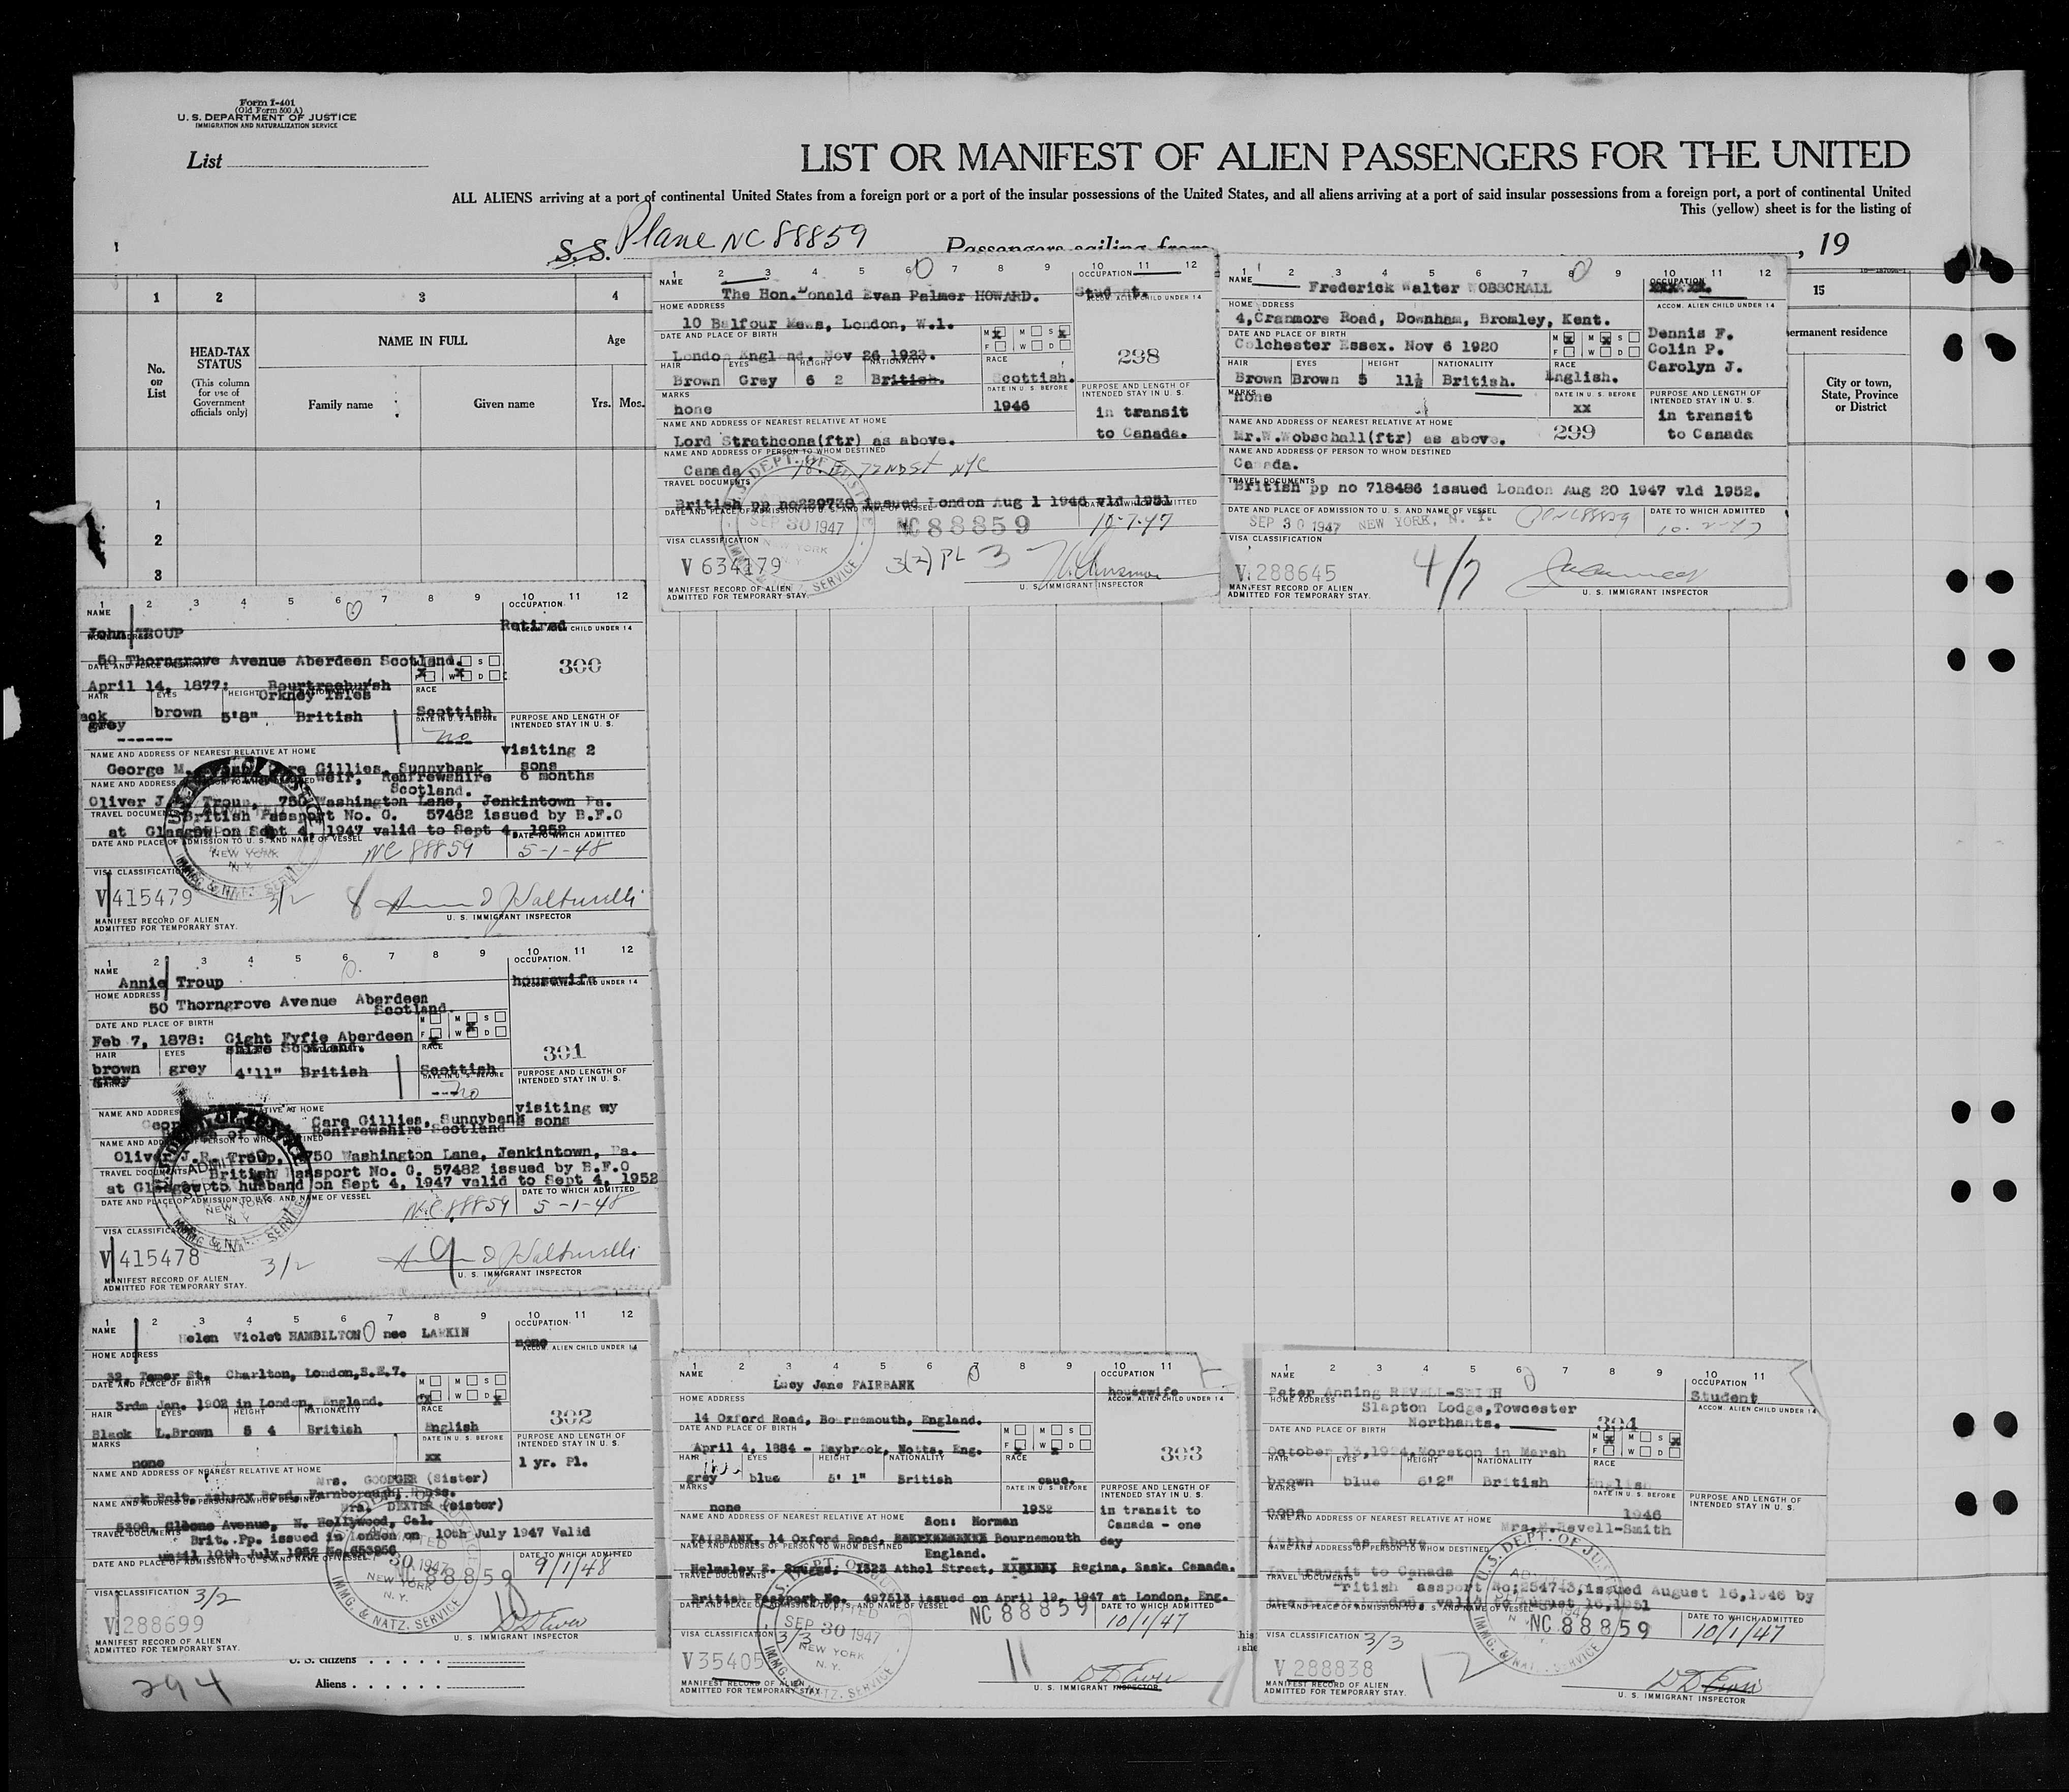 Form I-401
(Old Form 500 A)
U. S. DEPARTMENT OF JUSTICE
IMMIGRATION AND NATURALIZATION SERVICE
List
LIST OR MANIFEST OF ALIEN PASSENGERS FOR THE UNITED
ALL ALIENS arriving at a port of continental United States from a foreign port or a port of the insular possessions of the United States, and all aliens arriving at a port of said insular possessions from a foreign port, a port of continental United
This (yellow) sheet is for the listing of
S.S. Plane NC 88859 Passengers sailing from , 19
1 2 3 4 15
No. on List
HEAD-TAX STATUS
(This column for use of Government officials only)
NAME IN FULL
Family name Given name
Age
Yrs. Mos.
permanent residence
City or town, State, Province or District
1
2
3
1 2 3 4 5 6 7 8 9 10 11 12
NAME OCCUPATION
The Hon. Donald Evan Palmer HOWARD. Student.
HOME ADDRESS ACCOM. ALIEN CHILD UNDER 14
10 Balfour Mews, London, W.1.
DATE AND PLACE OF BIRTH M X M S X
F W D
London England. Nov 26 1923. 298
HAIR EYES HEIGHT NATIONALITY RACE
Brown Grey 6 2 British. Scottish.
MARKS DATE IN U. S. BEFORE PURPOSE AND LENGTH OF INTENDED STAY IN U. S.
none 1946 in transit
to Canada.
NAME AND ADDRESS OF NEAREST RELATIVE AT HOME
Lord Strathcona(ftr) as above.
NAME AND ADDRESS OF PERSON TO WHOM DESTINED
Canada 18. E. 72nd St NYC
TRAVEL DOCUMENTS
British pp no239738 issued London Aug 1 1946 vld 1951
DATE AND PLACE OF ADMISSION TO U. S. AND NAME OF VESSEL DATE TO WHICH ADMITTED
SEP 30 1947 NC 88859 10-7-47
NEW YORK
VISA CLASSIFICATION 3(2) PL 3
V 634179
U. S. IMMIGRANT INSPECTOR
MANIFEST RECORD OF ALIEN
ADMITTED FOR TEMPORARY STAY.
1 2 3 4 5 6 7 8 9 10 11 12
NAME OCCUPATION
Frederick Walter WOBSCHALL
HOME ADDRESS ACCOM. ALIEN CHILD UNDER 14
4, Cranmore Road, Downham, Bromley, Kent.
DATE AND PLACE OF BIRTH M X M X S
F W D
Colchester Essex. Nov 6 1920
Dennis F.
Colin P.
Carolyn J.
HAIR EYES HEIGHT NATIONALITY RACE
Brown Brown 5 11½ British. English.
MARKS DATE IN U. S. BEFORE PURPOSE AND LENGTH OF INTENDED STAY IN U. S.
none xx in transit
to Canada
NAME AND ADDRESS OF NEAREST RELATIVE AT HOME 299
Mr.W.Wobschall(ftr) as above.
NAME AND ADDRESS OF PERSON TO WHOM DESTINED
Canada.
TRAVEL DOCUMENTS
British pp no 718486 issued London Aug 20 1947 vld 1952.
DATE AND PLACE OF ADMISSION TO U. S. AND NAME OF VESSEL DATE TO WHICH ADMITTED
SEP 30 1947 NEW YORK, N. Y.
VISA CLASSIFICATION 4/7
V 288645
MANIFEST RECORD OF ALIEN U. S. IMMIGRANT INSPECTOR
ADMITTED FOR TEMPORARY STAY.
1 2 3 4 5 6 7 8 9 10 11 12
NAME OCCUPATION
John TROUP Retired
HOME ADDRESS ACCOM. ALIEN CHILD UNDER 14
50 Thorngrove Avenue Aberdeen Scotland. 300
DATE AND PLACE OF BIRTH
April 14, 1877:
Orkney Isles
HAIR EYES HEIGHT RACE
grey brown 5'8" British Scottish
DATE IN U. S. BEFORE PURPOSE AND LENGTH OF INTENDED STAY IN U. S.
------ no
NAME AND ADDRESS OF NEAREST RELATIVE AT HOME visiting 2
sons
6 months
George M. Gillies, Sunnybank
Renfrewshire
Scotland.
Oliver J. Troup, 750 Washington Lane, Jenkintown Pa.
TRAVEL DOCUMENTS British Passport No. G. 57482 issued by B.F.O
at Glasgow on Sept 4, 1947 valid to Sept 4, 1952
DATE AND PLACE OF ADMISSION TO U. S. AND NAME OF VESSEL DATE TO WHICH ADMITTED
NEW YORK N. Y. NC 88859 5-1-48
VISA CLASSIFICATION
V 415479 3/2 8
U. S. IMMIGRANT INSPECTOR
MANIFEST RECORD OF ALIEN
ADMITTED FOR TEMPORARY STAY.
1 2 3 4 5 6 7 8 9 10 11 12
NAME OCCUPATION.
Annie Troup housewife
HOME ADDRESS
50 Thorngrove Avenue Aberdeen
Scotland.
DATE AND PLACE OF BIRTH M M S
F W D
Feb 7, 1878: Cight Fyfie Aberdeen
shire Scotland. 301
HAIR EYES RACE
brown grey 4'11" British Scottish
grey
DATE IN U. S. BEFORE PURPOSE AND LENGTH OF INTENDED STAY IN U. S.
no
visiting my
sons
Care Gillies, Sunnybank
Renfrewshire Scotland
Oliver J.R. Troup, 750 Washington Lane, Jenkintown, Pa.
TRAVEL DOCUMENTS British Passport No. G. 57482 issued by B.F.O
at Glasgow to husband on Sept 4, 1947 valid to Sept 4, 1952
DATE AND PLACE OF ADMISSION TO U. S. AND NAME OF VESSEL DATE TO WHICH ADMITTED
NEW YORK N Y NC 88859 5-1-48
VISA CLASSIFICATION
V 415478 3/2 9
U. S. IMMIGRANT INSPECTOR
MANIFEST RECORD OF ALIEN
ADMITTED FOR TEMPORARY STAY.
1 2 3 4 5 6 7 8 9 10 11 12
NAME OCCUPATION
Helen Violet HAMBILTON nee LARKIN none
HOME ADDRESS ACCOM. ALIEN CHILD UNDER 14
St. Charlton, London,S.E.7.
DATE AND PLACE OF BIRTH
3rdm Jan. 1902 in London, England. 302
HAIR EYES HEIGHT NATIONALITY RACE
Black L.Brown 5 4 British English
MARKS DATE IN U. S. BEFORE PURPOSE AND LENGTH OF INTENDED STAY IN U. S.
none xx 1 yr. Pl.
NAME AND ADDRESS OF NEAREST RELATIVE AT HOME
Mrs. GOODGER (Sister)
Road, Farnborough, Hants.
Mrs. DEXTER (sister)
Avenue, N. Hollywood, Cal.
TRAVEL DOCUMENTS
Brit. Pp. issued in London on 10th July 1947 Valid
until 10th July 1952 No 653956
DATE TO WHICH ADMITTED
30 1947 NC 88859 9/1/48
NEW YORK N. Y.
IMMG. & NATZ. SERVICE
VISA CLASSIFICATION 3/2 10
V 288699
U. S. IMMIGRANT INSPECTOR
MANIFEST RECORD OF ALIEN
ADMITTED FOR TEMPORARY STAY.
1 2 3 4 5 6 7 8 9 10 11
NAME OCCUPATION
Lucy Jane FAIRBANK housewife
HOME ADDRESS ACCOM. ALIEN CHILD UNDER 14
14 Oxford Road, Bournemouth, England.
DATE AND PLACE OF BIRTH M M S
F W D
April 4, 1884 - Daybrook, Notts, Eng. 303
HAIR EYES HEIGHT NATIONALITY RACE
grey blue 5' 1" British cauc.
MARKS DATE IN U. S. BEFORE PURPOSE AND LENGTH OF INTENDED STAY IN U. S.
none 1932 in transit to
Canada - one
day
NAME AND ADDRESS OF NEAREST RELATIVE AT HOME Son: Norman
FAIRBANK, 14 Oxford Road, Bournemouth
England.
NAME AND ADDRESS OF PERSON TO WHOM DESTINED
1323 Athol Street, Regina, Sask. Canada.
TRAVEL DOCUMENTS
British Passport No. 497513 issued on April 19, 1947 at London, Eng.
DATE AND PLACE OF ADMISSION TO U. S. AND NAME OF VESSEL DATE TO WHICH ADMITTED
SEP 30 1947 NC 88859 10/1/47
NEW YORK N. Y.
VISA CLASSIFICATION 3/3 11
V 35405
MANIFEST RECORD OF ALIEN U. S. IMMIGRANT INSPECTOR
ADMITTED FOR TEMPORARY STAY.
1 2 3 4 5 6 7 8 9 10 11
NAME OCCUPATION
Peter Anning REVELL-SMITH Student
HOME ADDRESS ACCOM. ALIEN CHILD UNDER 14
Slapton Lodge,Towcester
Northants. 304
DATE AND PLACE OF BIRTH M X M S X
F W D
October 13,1924,Moreton in Marsh
HAIR EYES HEIGHT NATIONALITY RACE
brown blue 6'2" British English
MARKS DATE IN U. S. BEFORE PURPOSE AND LENGTH OF INTENDED STAY IN U. S.
none 1946
NAME AND ADDRESS OF NEAREST RELATIVE AT HOME Mrs.N.Revell-Smith
(Mth) as above
NAME AND ADDRESS OF PERSON TO WHOM DESTINED
In transit to Canada
TRAVEL DOCUMENTS
British Passport No;254743,issued August 16,1946 by
London, valid to August 16,1951
NC 88859 DATE TO WHICH ADMITTED
10/1/47
VISA CLASSIFICATION 3/3 12
V 288838
MANIFEST RECORD OF ALIEN U. S. IMMIGRANT INSPECTOR
ADMITTED FOR TEMPORARY STAY.
U. S. citizens
Aliens
294